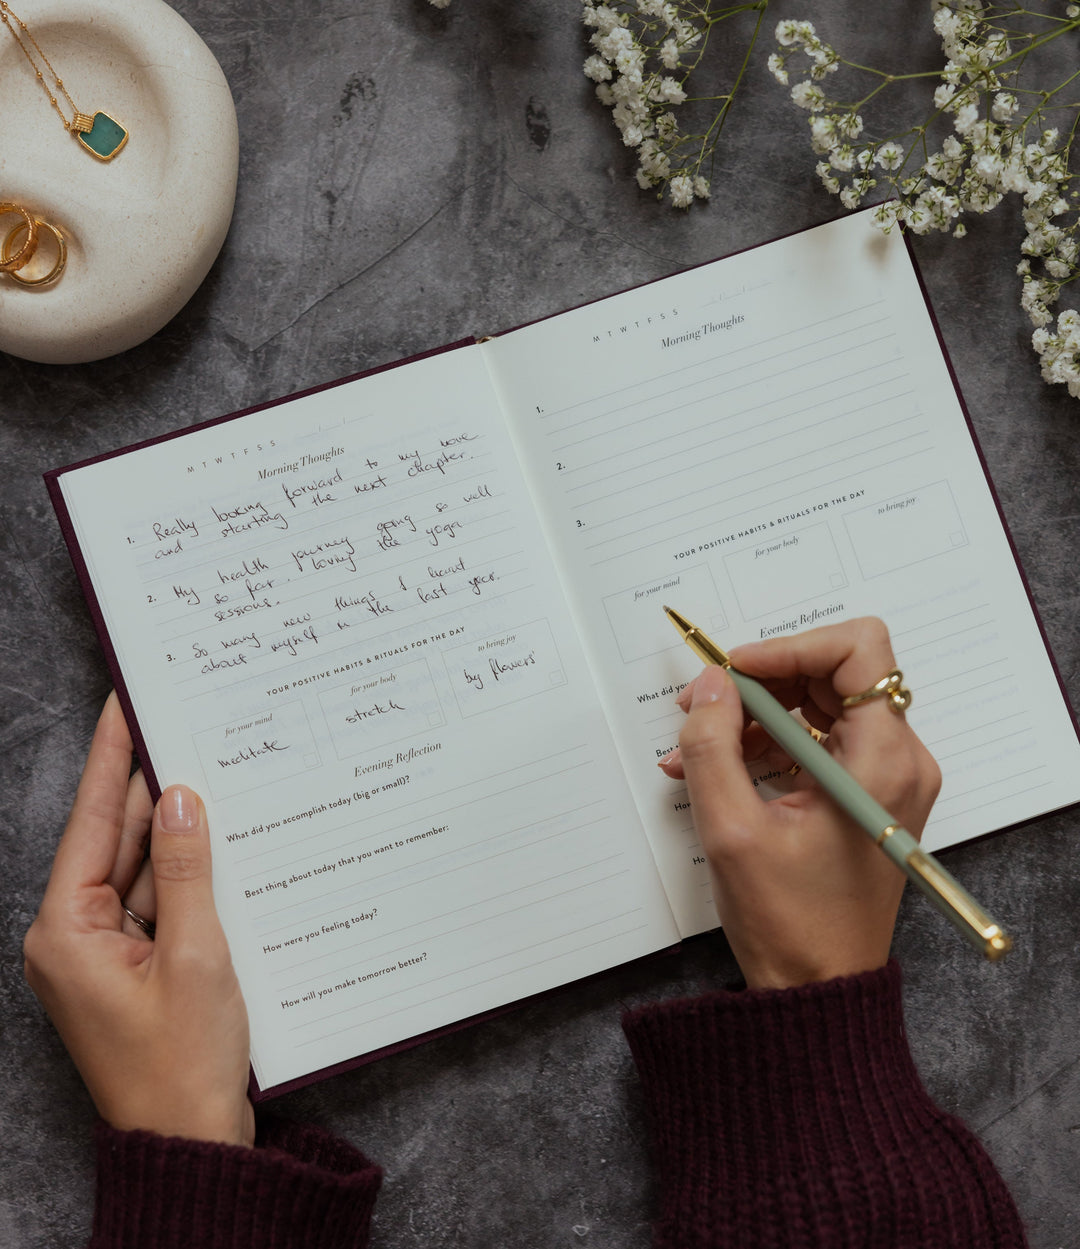 M T W T F S S
Morning Thoughts
1. Really looking forward to my move
and starting the next chapter.
2. My health journey going so well
so far. Loving the yoga
sessions.
3. So many new things I learnt
about myself in the last year.
YOUR POSITIVE HABITS & RITUALS FOR THE DAY
for your mind
meditate
for your body
stretch
to bring joy
by flowers
Evening Reflection
What did you accomplish today (big or small)?
Best thing about today that you want to remember:
How were you feeling today?
How will you make tomorrow better?
M T W T F S S
Morning Thoughts
1.
2.
3.
YOUR POSITIVE HABITS & RITUALS FOR THE DAY
for your mind
for your body
to bring joy
Evening Reflection
What did you
Best
g today.
How
Ho